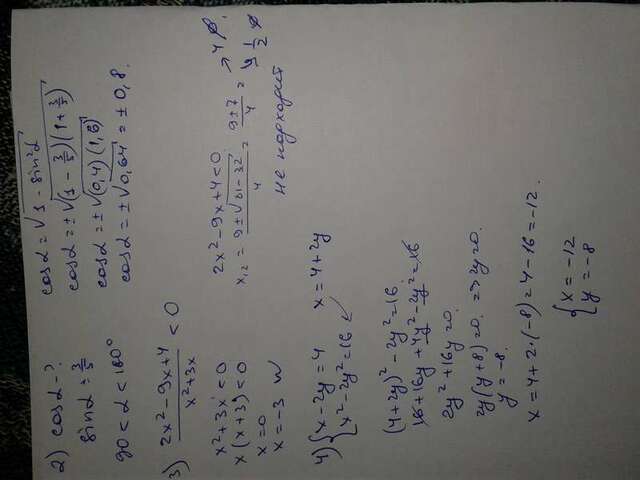 2) cosα - ?
sinα = 3/5
90 < α < 180°
cosα = √(1 - sin²α)
cosα = ±√((1 - 3/5)(1 + 3/5))
cosα = ±√((0,4)(1,6))
cosα = ±√0,64 = ±0,8.
3) (2x² - 9x + 4)/(x² + 3x) < 0
x² + 3x < 0
x(x+3) < 0
x = 0
x = -3
2x² - 9x + 4 < 0
x₁,₂ = (9 ± √(81 - 32))/4 = (9 ± 7)/4 =
4 ∅
1/2 ∅
не подходит
4) { x - 2y = 4
x² - 2y² = 16
x = 4 + 2y
(4 + 2y)² - 2y² = 16
16 + 16y + 4y² - 2y² = 16
2y² + 16y = 0
2y(y + 8) = 0. => 2y = 0.
y = -8.
x = 4 + 2·(-8) = 4 - 16 = -12.
{ x = -12
y = -8